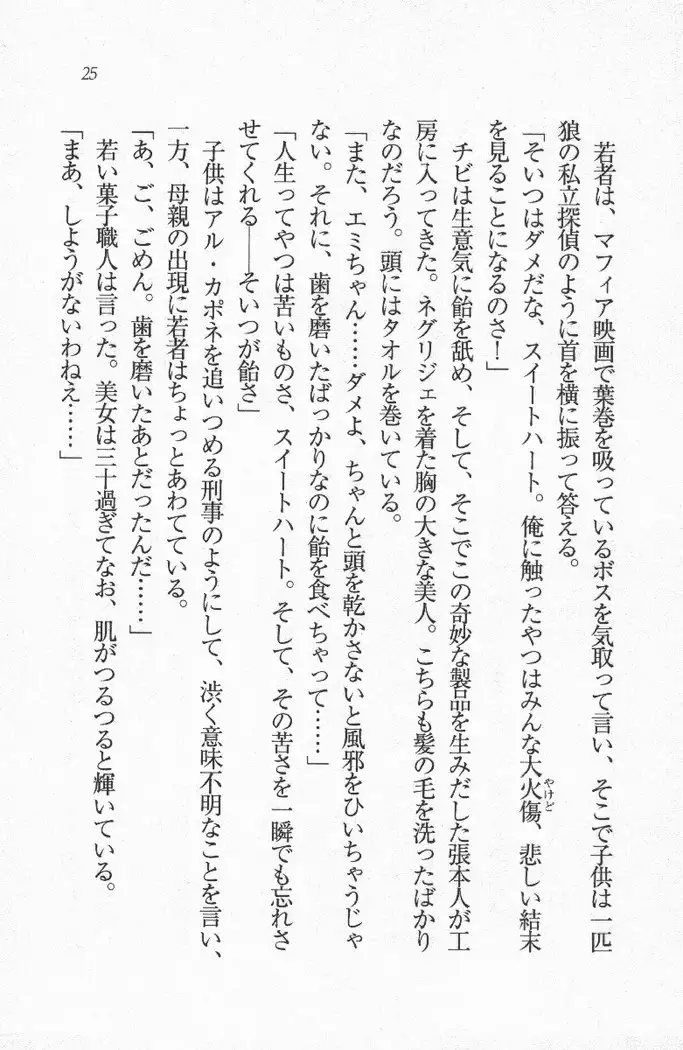 25
　若者は、マフィア映画で葉巻を吸っているボスを気取って言い、そこで子供は一匹
狼の私立探偵のように首を横に振って答える。
「そいつはダメだな、スイートハート。俺に触ったやつはみんな大火傷、悲しい結末
やけど
を見ることになるのさ！」
　チビは生意気に飴を舐め、そして、そこでこの奇妙な製品を生みだした張本人が工
房に入ってきた。ネグリジェを着た胸の大きな美人。こちらも髪の毛を洗ったばかり
なのだろう。頭にはタオルを巻いている。
「また、エミちゃん……ダメよ、ちゃんと頭を乾かさないと風邪をひいちゃうじゃ
ない。それに、歯を磨いたばっかりなのに飴を食べちゃって……」
「人生ってやつは苦いものさ、スイートハート。そして、その苦さを一瞬でも忘れさ
せてくれる――そいつが飴さ」
　子供はアル・カポネを追いつめる刑事のようにして、渋く意味不明なことを言い、
一方、母親の出現に若者はちょっとあわてている。
「あ、ご、ごめん。歯を磨いたあとだったんだ……」
　若い菓子職人は言った。美女は三十過ぎてなお、肌がつるつると輝いている。
「まあ、しようがないわねえ……」